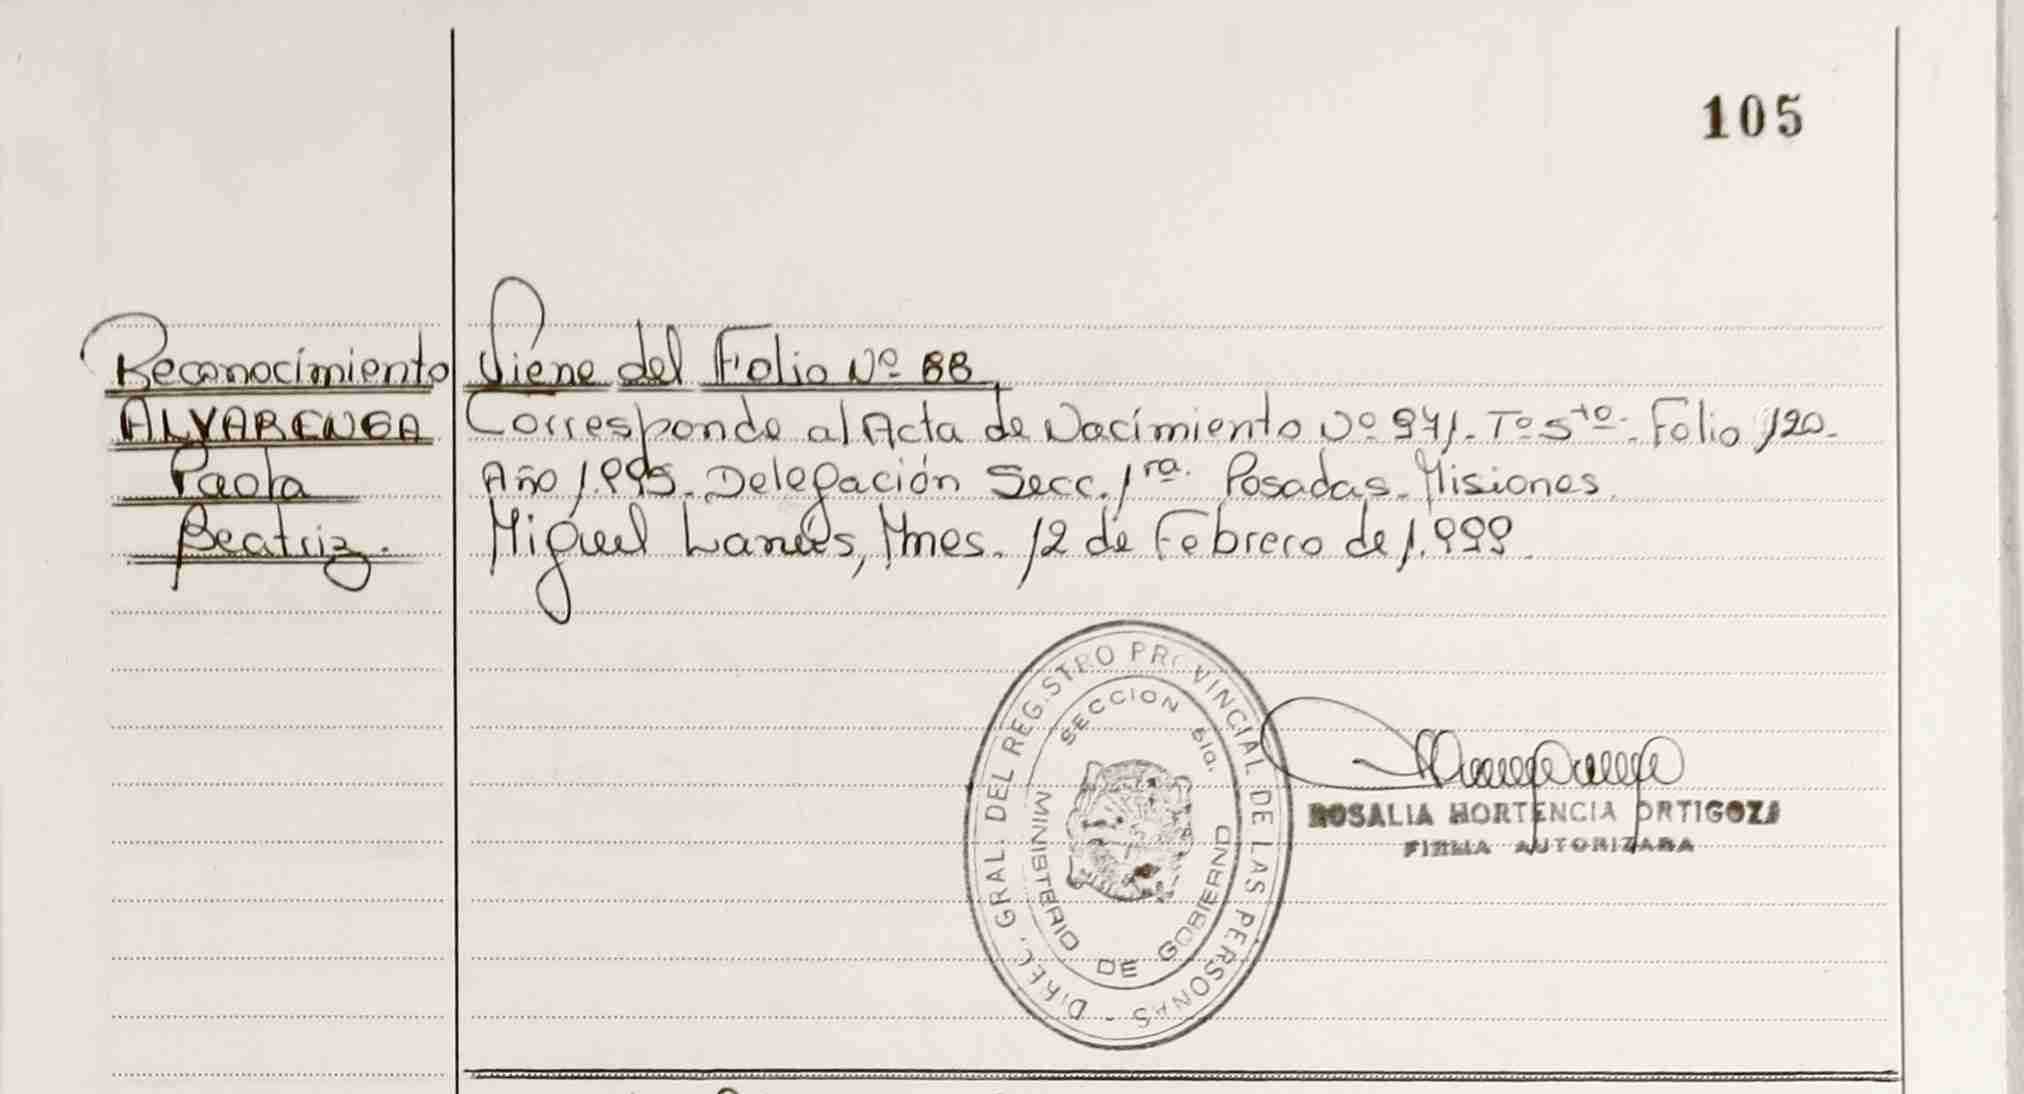 105
Reconocimiento
ALVARENGA
Paola
Beatriz.
Viene del Folio Nº 88
Corresponde al Acta de Nacimiento Nº 941. Tº 5to. Folio 120.
Año 1.995. Delegación Secc. 1ra. Posadas. Misiones.
Miguel Lanús, Mnes. 12 de Febrero de 1.999.
DIREC. GRAL. DEL REGISTRO PROVINCIAL DE LAS PERSONAS -
SECCION 5ta.
MINISTERIO DE GOBIERNO
ROSALIA HORTENCIA ORTIGOZA
FIRMA AUTORIZADA